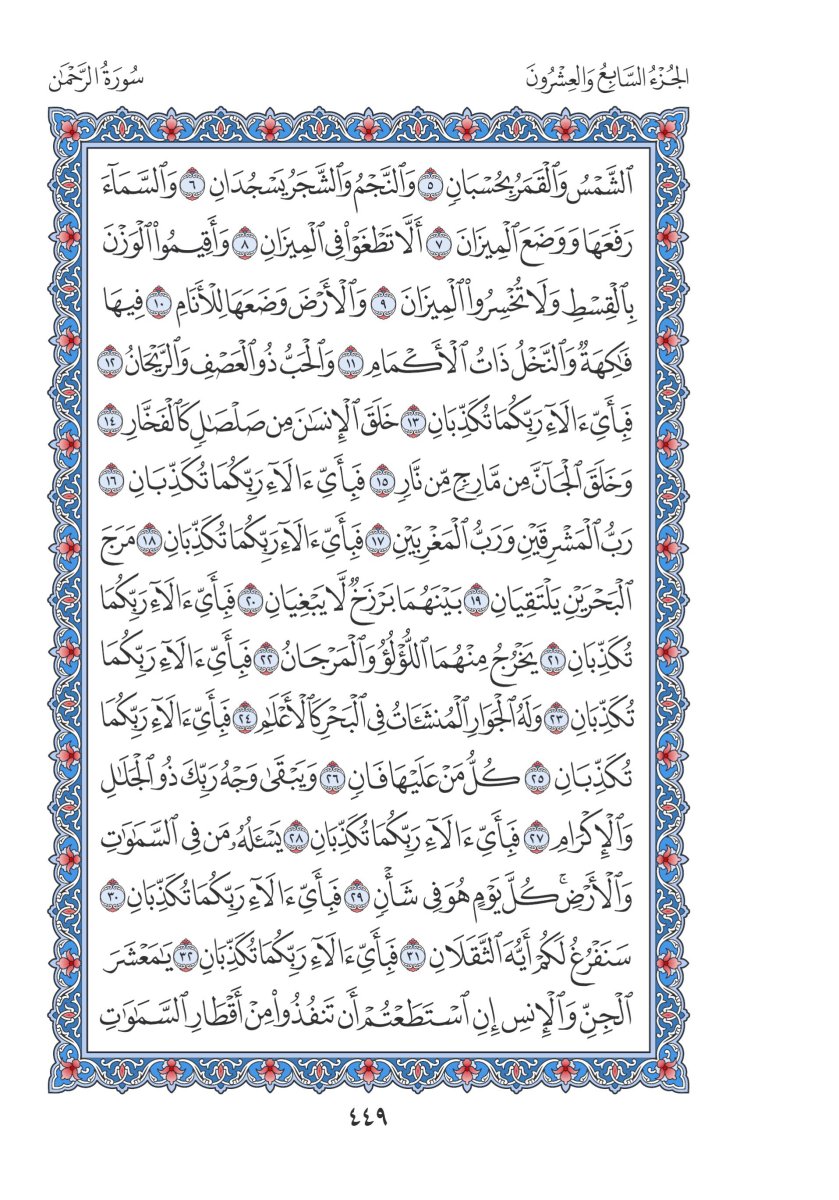 الجُزْءُ السَّابِعُ وَالعِشْرُونَ
سُورَةُ الرَّحْمَٰن
ٱلشَّمْسُ وَٱلْقَمَرُ بِحُسْبَانٍ ٥ وَٱلنَّجْمُ وَٱلشَّجَرُ يَسْجُدَانِ ٦ وَٱلسَّمَآءَ
رَفَعَهَا وَوَضَعَ ٱلْمِيزَانَ ٧ أَلَّا تَطْغَوْاْ فِي ٱلْمِيزَانِ ٨ وَأَقِيمُواْ ٱلْوَزْنَ
بِٱلْقِسْطِ وَلَا تُخْسِرُواْ ٱلْمِيزَانَ ٩ وَٱلْأَرْضَ وَضَعَهَا لِلْأَنَامِ ١٠ فِيهَا
فَٰكِهَةٌ وَٱلنَّخْلُ ذَاتُ ٱلْأَكْمَامِ ١١ وَٱلْحَبُّ ذُو ٱلْعَصْفِ وَٱلرَّيْحَانُ ١٢
فَبِأَيِّ ءَالَآءِ رَبِّكُمَا تُكَذِّبَانِ ١٣ خَلَقَ ٱلْإِنسَٰنَ مِن صَلْصَٰلٍ كَٱلْفَخَّارِ ١٤
وَخَلَقَ ٱلْجَآنَّ مِن مَّارِجٍ مِّن نَّارٍ ١٥ فَبِأَيِّ ءَالَآءِ رَبِّكُمَا تُكَذِّبَانِ ١٦
رَبُّ ٱلْمَشْرِقَيْنِ وَرَبُّ ٱلْمَغْرِبَيْنِ ١٧ فَبِأَيِّ ءَالَآءِ رَبِّكُمَا تُكَذِّبَانِ ١٨ مَرَجَ
ٱلْبَحْرَيْنِ يَلْتَقِيَانِ ١٩ بَيْنَهُمَا بَرْزَخٌ لَّا يَبْغِيَانِ ٢٠ فَبِأَيِّ ءَالَآءِ رَبِّكُمَا
تُكَذِّبَانِ ٢١ يَخْرُجُ مِنْهُمَا ٱللُّؤْلُؤُ وَٱلْمَرْجَانُ ٢٢ فَبِأَيِّ ءَالَآءِ رَبِّكُمَا
تُكَذِّبَانِ ٢٣ وَلَهُ ٱلْجَوَارِ ٱلْمُنشَـَٔاتُ فِي ٱلْبَحْرِ كَٱلْأَعْلَٰمِ ٢٤ فَبِأَيِّ ءَالَآءِ رَبِّكُمَا
تُكَذِّبَانِ ٢٥ كُلُّ مَنْ عَلَيْهَا فَانٍ ٢٦ وَيَبْقَىٰ وَجْهُ رَبِّكَ ذُو ٱلْجَلَٰلِ
وَٱلْإِكْرَامِ ٢٧ فَبِأَيِّ ءَالَآءِ رَبِّكُمَا تُكَذِّبَانِ ٢٨ يَسْـَٔلُهُۥ مَن فِي ٱلسَّمَٰوَٰتِ
وَٱلْأَرْضِۚ كُلَّ يَوْمٍ هُوَ فِي شَأْنٍ ٢٩ فَبِأَيِّ ءَالَآءِ رَبِّكُمَا تُكَذِّبَانِ ٣٠
سَنَفْرُغُ لَكُمْ أَيُّهَ ٱلثَّقَلَانِ ٣١ فَبِأَيِّ ءَالَآءِ رَبِّكُمَا تُكَذِّبَانِ ٣٢ يَٰمَعْشَرَ
ٱلْجِنِّ وَٱلْإِنسِ إِنِ ٱسْتَطَعْتُمْ أَن تَنفُذُواْ مِنْ أَقْطَارِ ٱلسَّمَٰوَٰتِ
٤٤٩